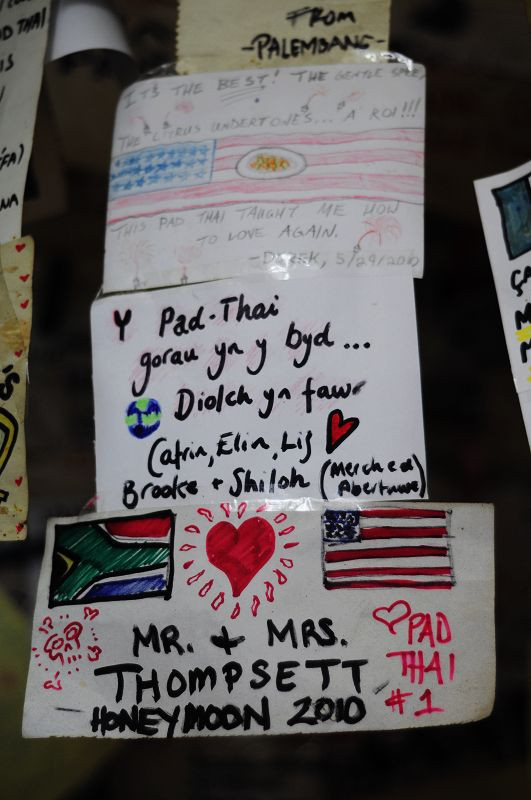 FROM
-PALEMBANG-
IT'S THE BEST! THE GENTLE SPICE,
THE CITRUS UNDERTONES... A ROI!!!
THIS PAD THAI TAUGHT ME HOW
TO LOVE AGAIN.
-DEREK, 5/29/2010
Y Pad-Thai
gorau yn y byd...
Diolch yn fawr
Catrin, Elin, Lis
Brooke + Shiloh (Merched
Abertawe)
MR. + MRS.
THOMPSETT
HONEYMOON 2010
PAD
THAI
#1